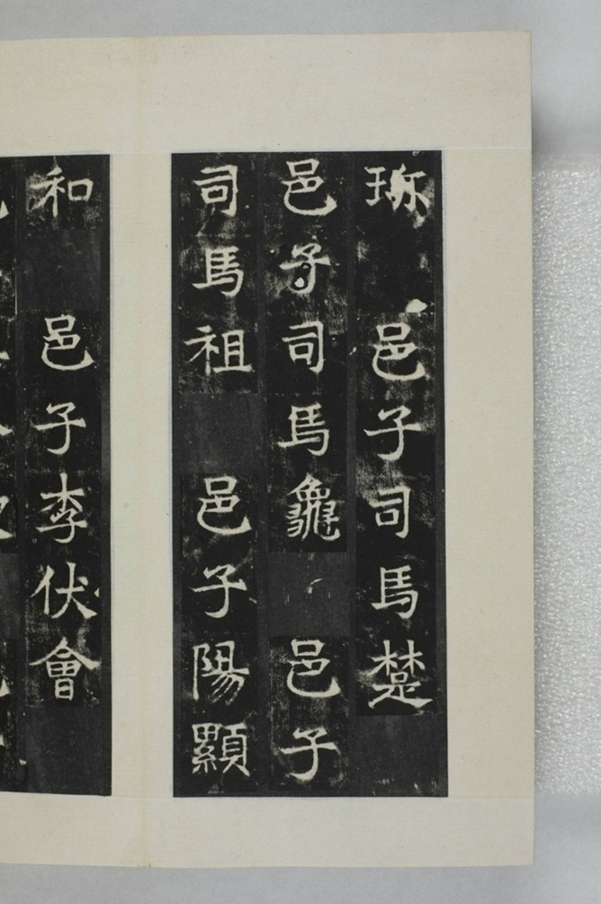 珎 邑子司馬楚
邑子司馬龜 邑子
司馬祖 邑子陽顯
和 邑子李伏會